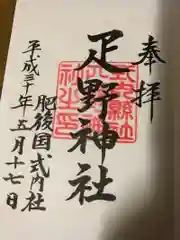 奉拝
疋野神社
肥後国式内社
平成三十年五月十七日